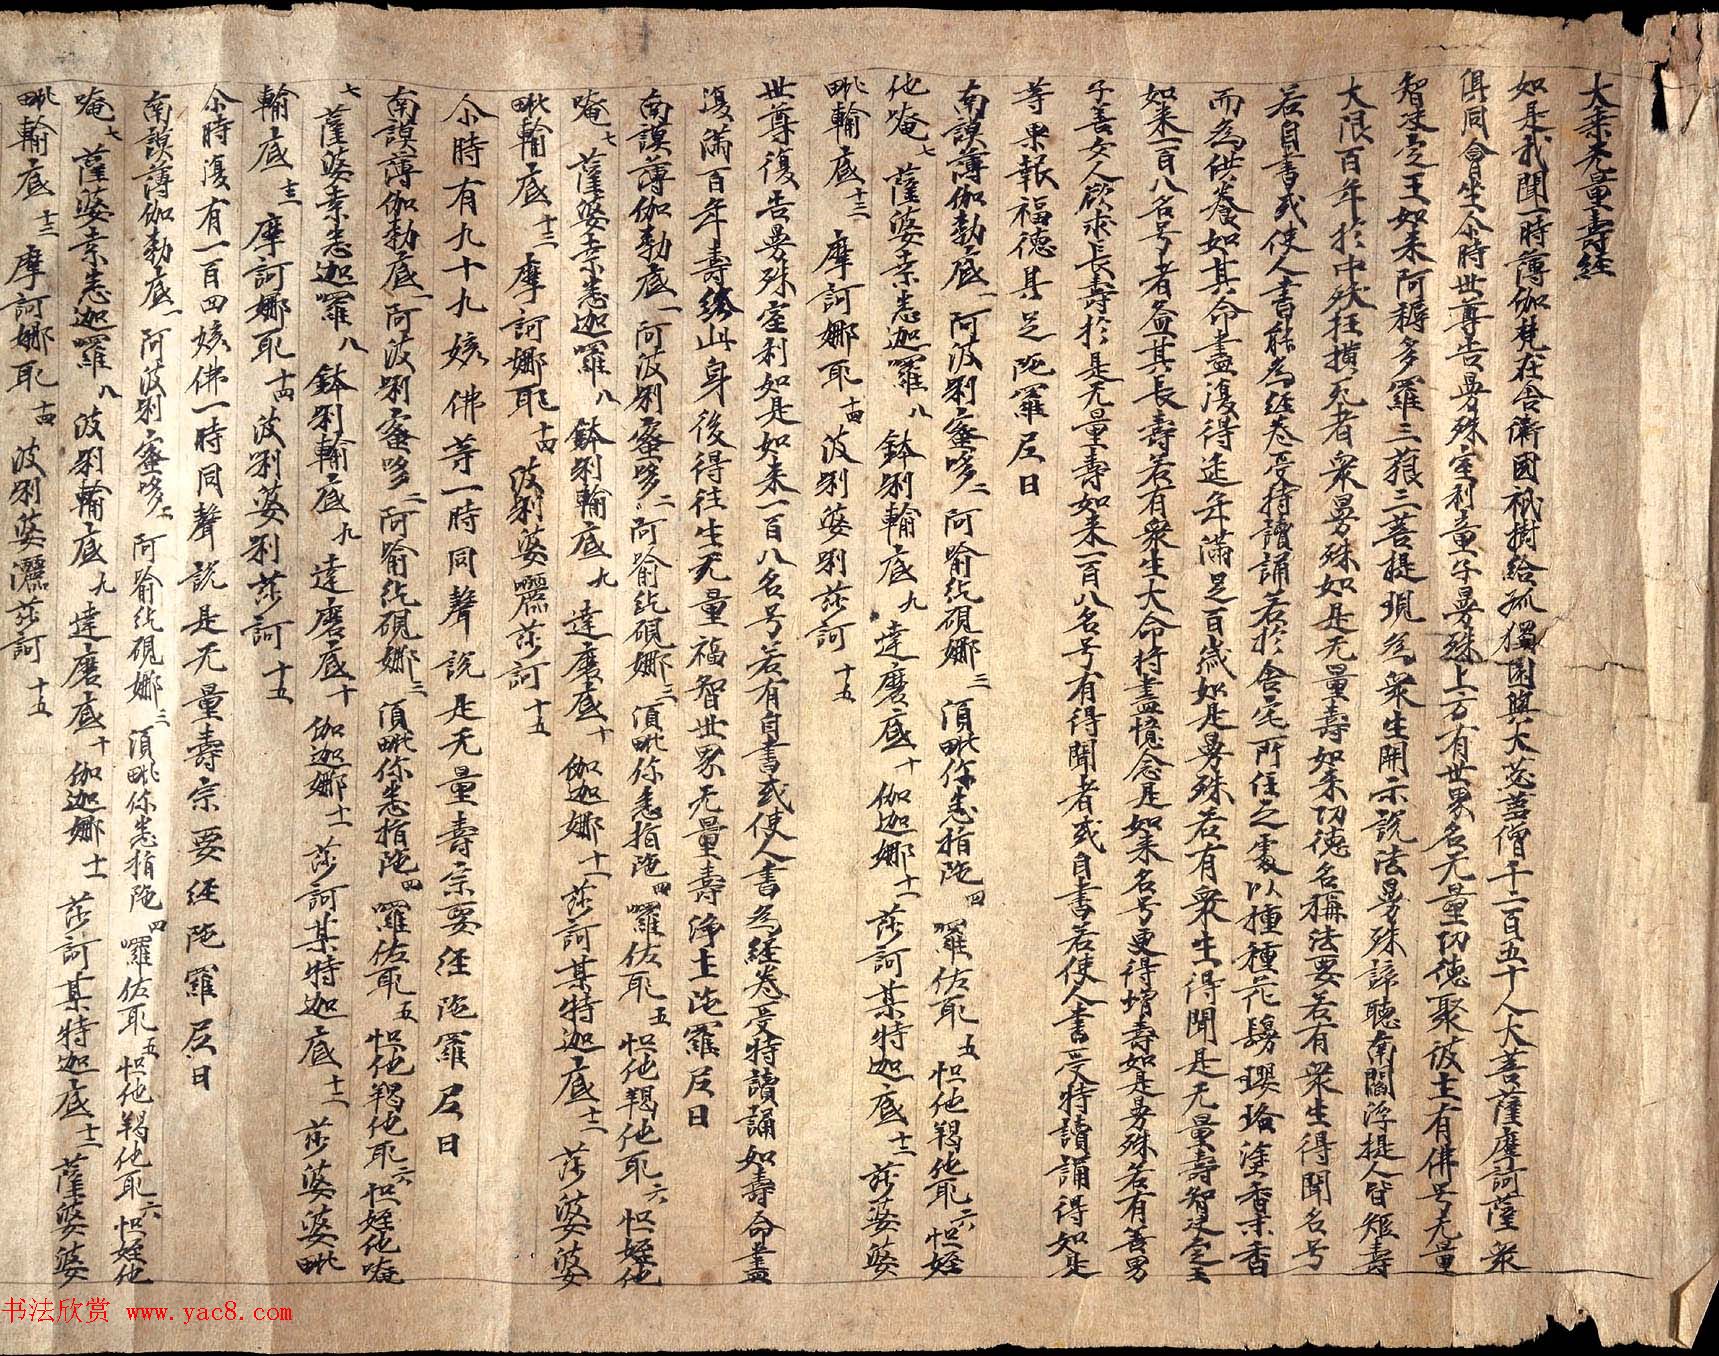 大乘无量壽經
如是我聞一時薄伽梵在舍衛國祇樹給孤獨園與大苾蒭僧千二百五十人大菩薩摩訶薩衆
俱同會坐尒時世尊告曼殊室利童子曼殊上方有世界名无量功德聚彼土有佛号无量
智决定王如来阿耨多羅三藐三菩提現為衆生開示說法曼殊諦聽南閻浮提人皆短壽
大限百年於中殀枉橫死者衆曼殊如是无量壽如来功德名稱法要若有衆生得聞名号
若自書或使人書能為經卷受持讀誦若於舍宅所住之處以種種花鬘瓔珞塗香末香
而為供養如其命盡復得延年滿足百歲如是曼殊若有衆生得聞是无量壽智决定王
如来一百八名号者益其長壽若有衆生大命将盡憶念是如来名号更得增壽如是曼殊若有善男
子善女人欲求長壽於是无量壽如来一百八名号有得聞者或自書若使人書受持讀誦得如是
等果報福德具足陁羅尼曰
南謨薄伽勃底一阿波唎蜜哆二阿喻紇硯娜三須毗你悉指陁四囉佐耶五怛他羯他耶六怛姪
他唵七薩婆桒悉迦羅八鉢唎輸底九達磨底十伽迦娜十一莎訶某特迦底十二莎婆婆
毗輸底十三摩訶娜耶十四波唎婆唎莎訶十五
世尊復告曼殊室利如是如来一百八名号若有自書或使人書為經卷受持讀誦如壽命盡
復滿百年壽終此身後得往生无量福智世界无量壽淨土陁羅尼曰
南謨薄伽勃底一阿波唎蜜哆二阿喻紇硯娜三須毗你悉指陁四囉佐耶五怛他羯他耶六怛姪他
唵七薩婆桒悉迦羅八鉢唎輸底九達磨底十伽迦娜十一莎訶某特迦底十二莎婆婆
毗輸底十三摩訶娜耶十四波唎婆囇莎訶十五
尒時有九十九姟佛等一時同聲說是无量壽宗要經陁羅尼曰
南謨薄伽勃底一阿波唎蜜哆二阿喻紇硯娜三須毗你悉指陁四囉佐耶五怛他羯他耶六怛姪他唵
七薩婆桒悉迦羅八鉢唎輸底九達磨底十伽迦娜十一莎訶某特迦底十二莎婆婆毗
輸底十三摩訶娜耶十四波唎婆唎莎訶十五
尒時復有一百四姟佛一時同聲說是无量壽宗要經陁羅尼曰
南謨薄伽勃底一阿波唎蜜哆二阿喻紇硯娜三須毗你悉指陁四囉佐耶五怛他羯他耶六怛姪他
唵七薩婆桒悉迦羅八波唎輸底九達磨底十伽迦娜十一莎訶某特迦底十二薩婆婆
毗輸底十三摩訶娜耶十四波唎婆灑莎訶十五
书法欣赏 www.yac8.com